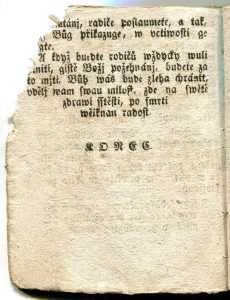 radiče poslaumete, a tak,
Bůg přikazuge, w uctiwosti ge
gte.
A když budte rodičů wždycky wuli
initi, gistě Boží požehnánj, budete za
to mjti. Bůh wás bude zleha chránit,
wdělj wam swau milost, zde na swětě
zdrawi sstěstj, po smrti
wěiknau radost
KONEC